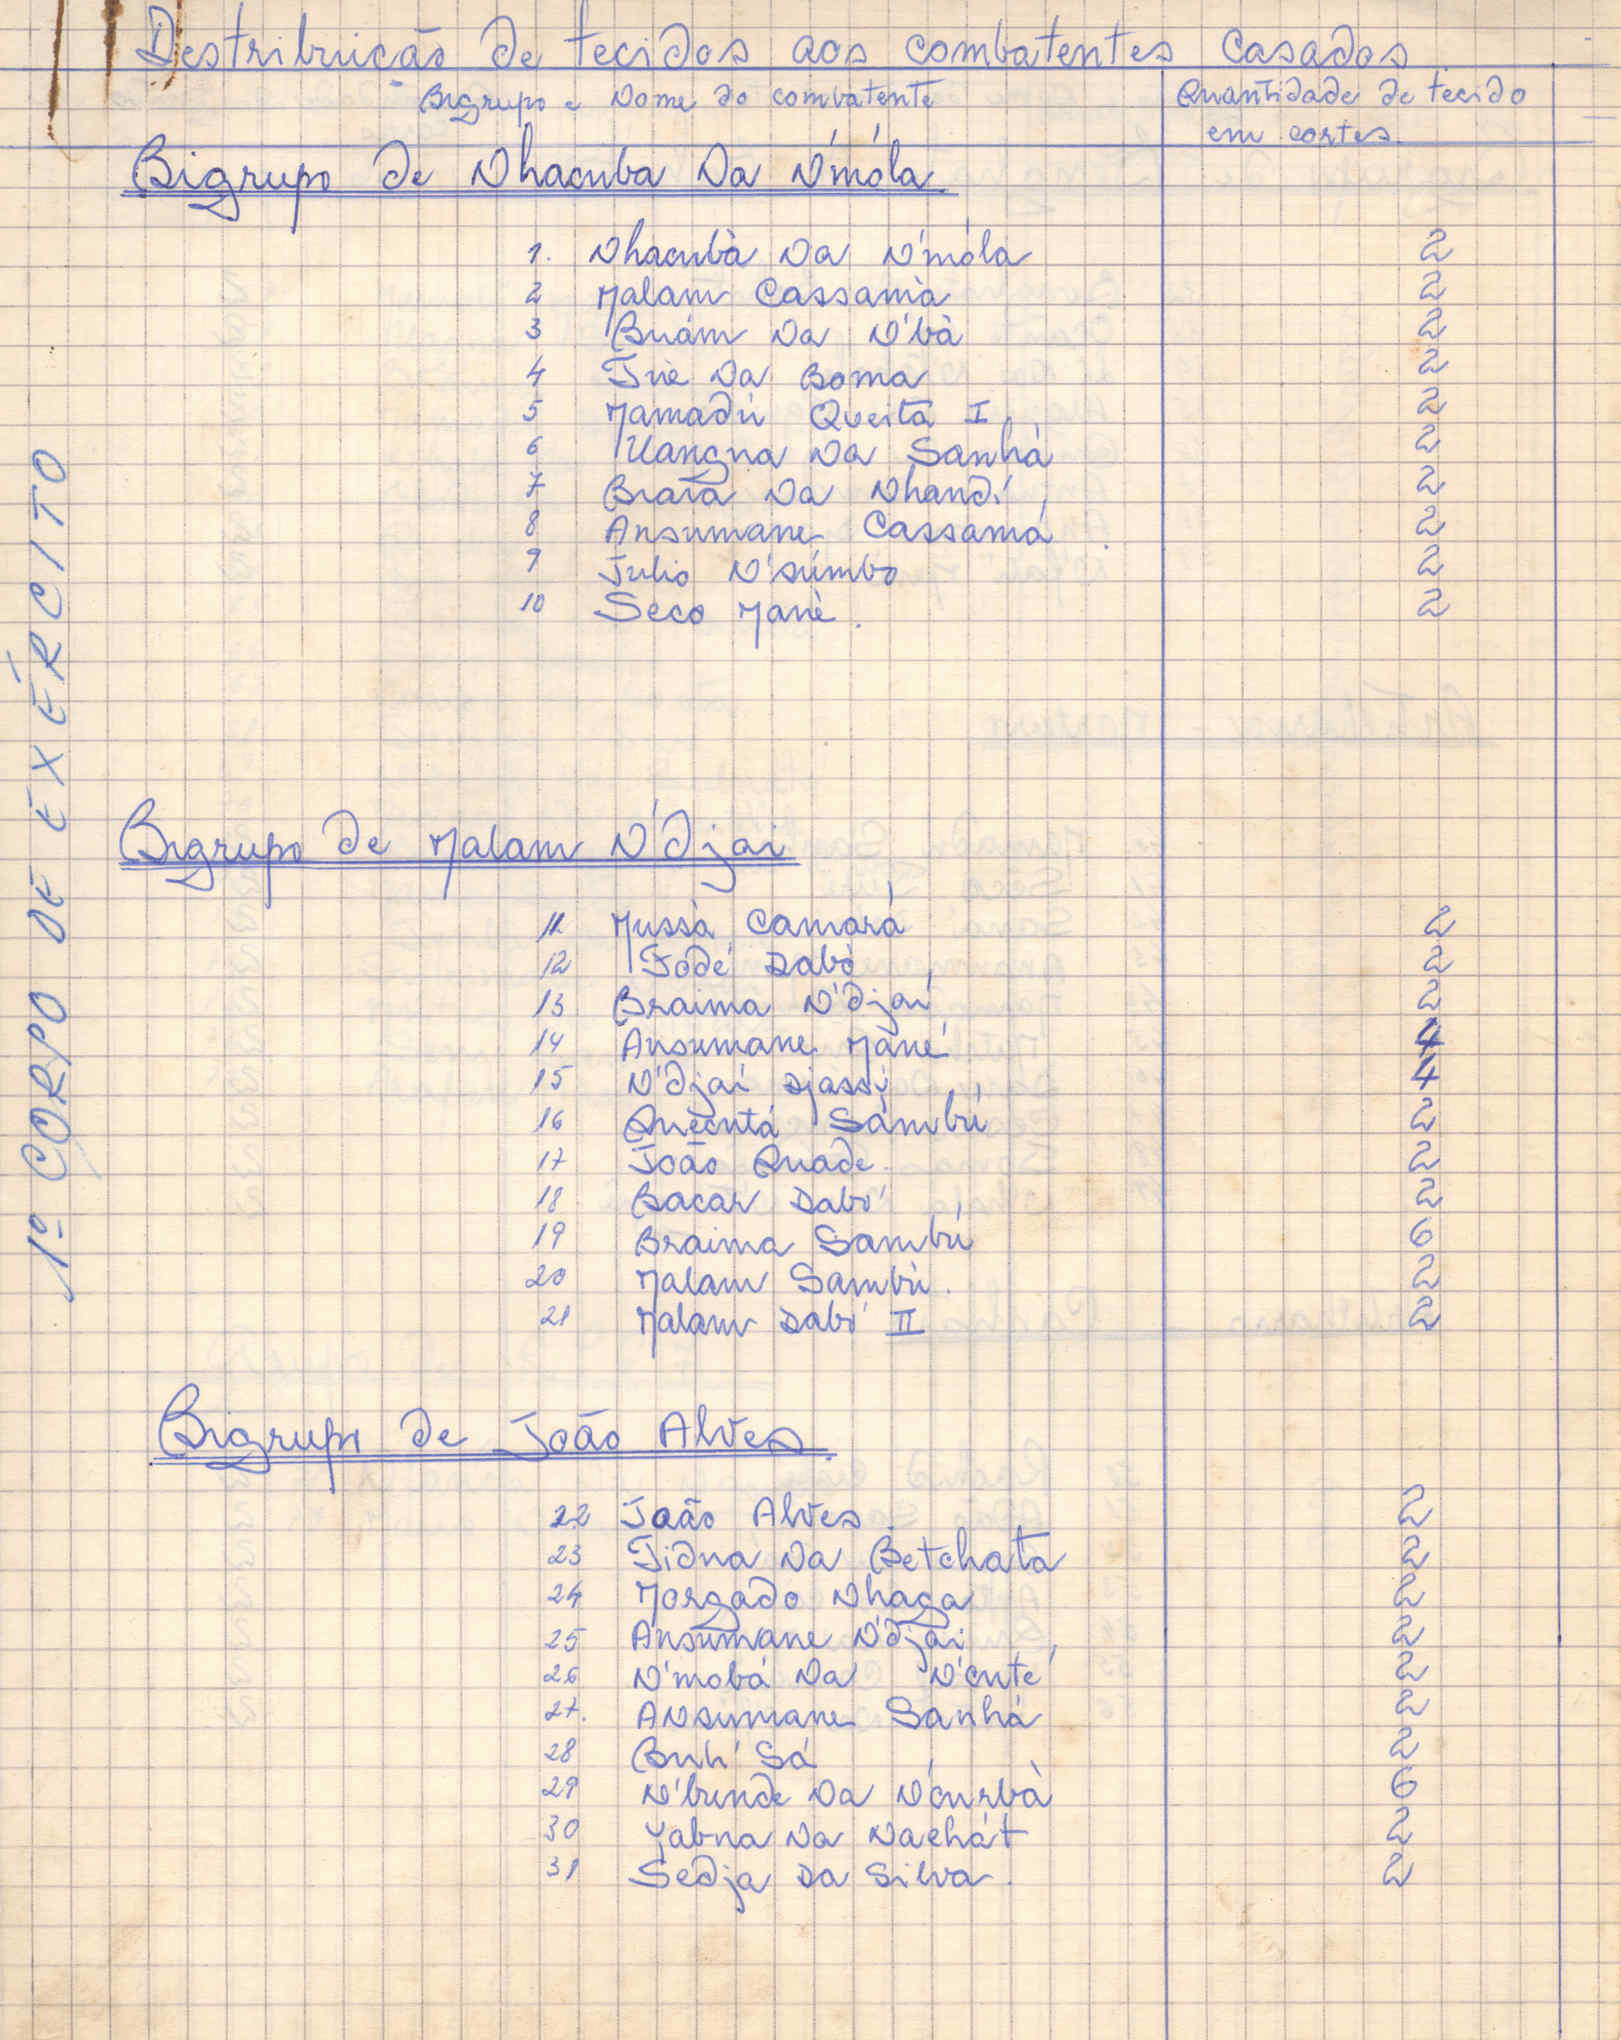 Destribuição de tecidos aos combatentes casados
Bigrupo e Nome do combatente
Quantidade de tecido
em cortes.
Bigrupo de Nhacuba Na N'móla
1. Nhacubà Na N'móla 2
2 Malam Cassamà 2
3 Buám Na N'bà 2
4 Na Boma 2
5 Mamadú Queità I 2
6 Uangna Na Sanhà 2
7 Braia Na Nhandí 2
8 Ansumane Cassamá 2
9 Julio N'súmbo 2
10 Seco Mané. 2
1º CORPO DE EXÉRCITO
Bigrupo de Malam N'djai
11 Mussà Camará 2
12 Fodé Dabó 2
13 Braima N'djaí 2
14 Ansumane Mané 4
15 N'djai Djassy 4
16 Quecutá Sambú 2
17 João Quade. 2
18 Bacar Dabó 2
19 Braima Sambú 6
20 Malam Sambú. 2
21 Malam Dabó II 2
Bigrupo de João Alves.
22 João Alves. 2
23 Tidna Na Betchata 2
24 Morgado Nhaga 2
25 Ansumane N'djai 2
26 N'mobá Na N'cuté 2
27. Ansumane Sanhá 2
28 Sá 2
29 N'bunde Na N'curbà 6
30 Yabna Na Nachát 2
31 Sedja Da Silva. 2